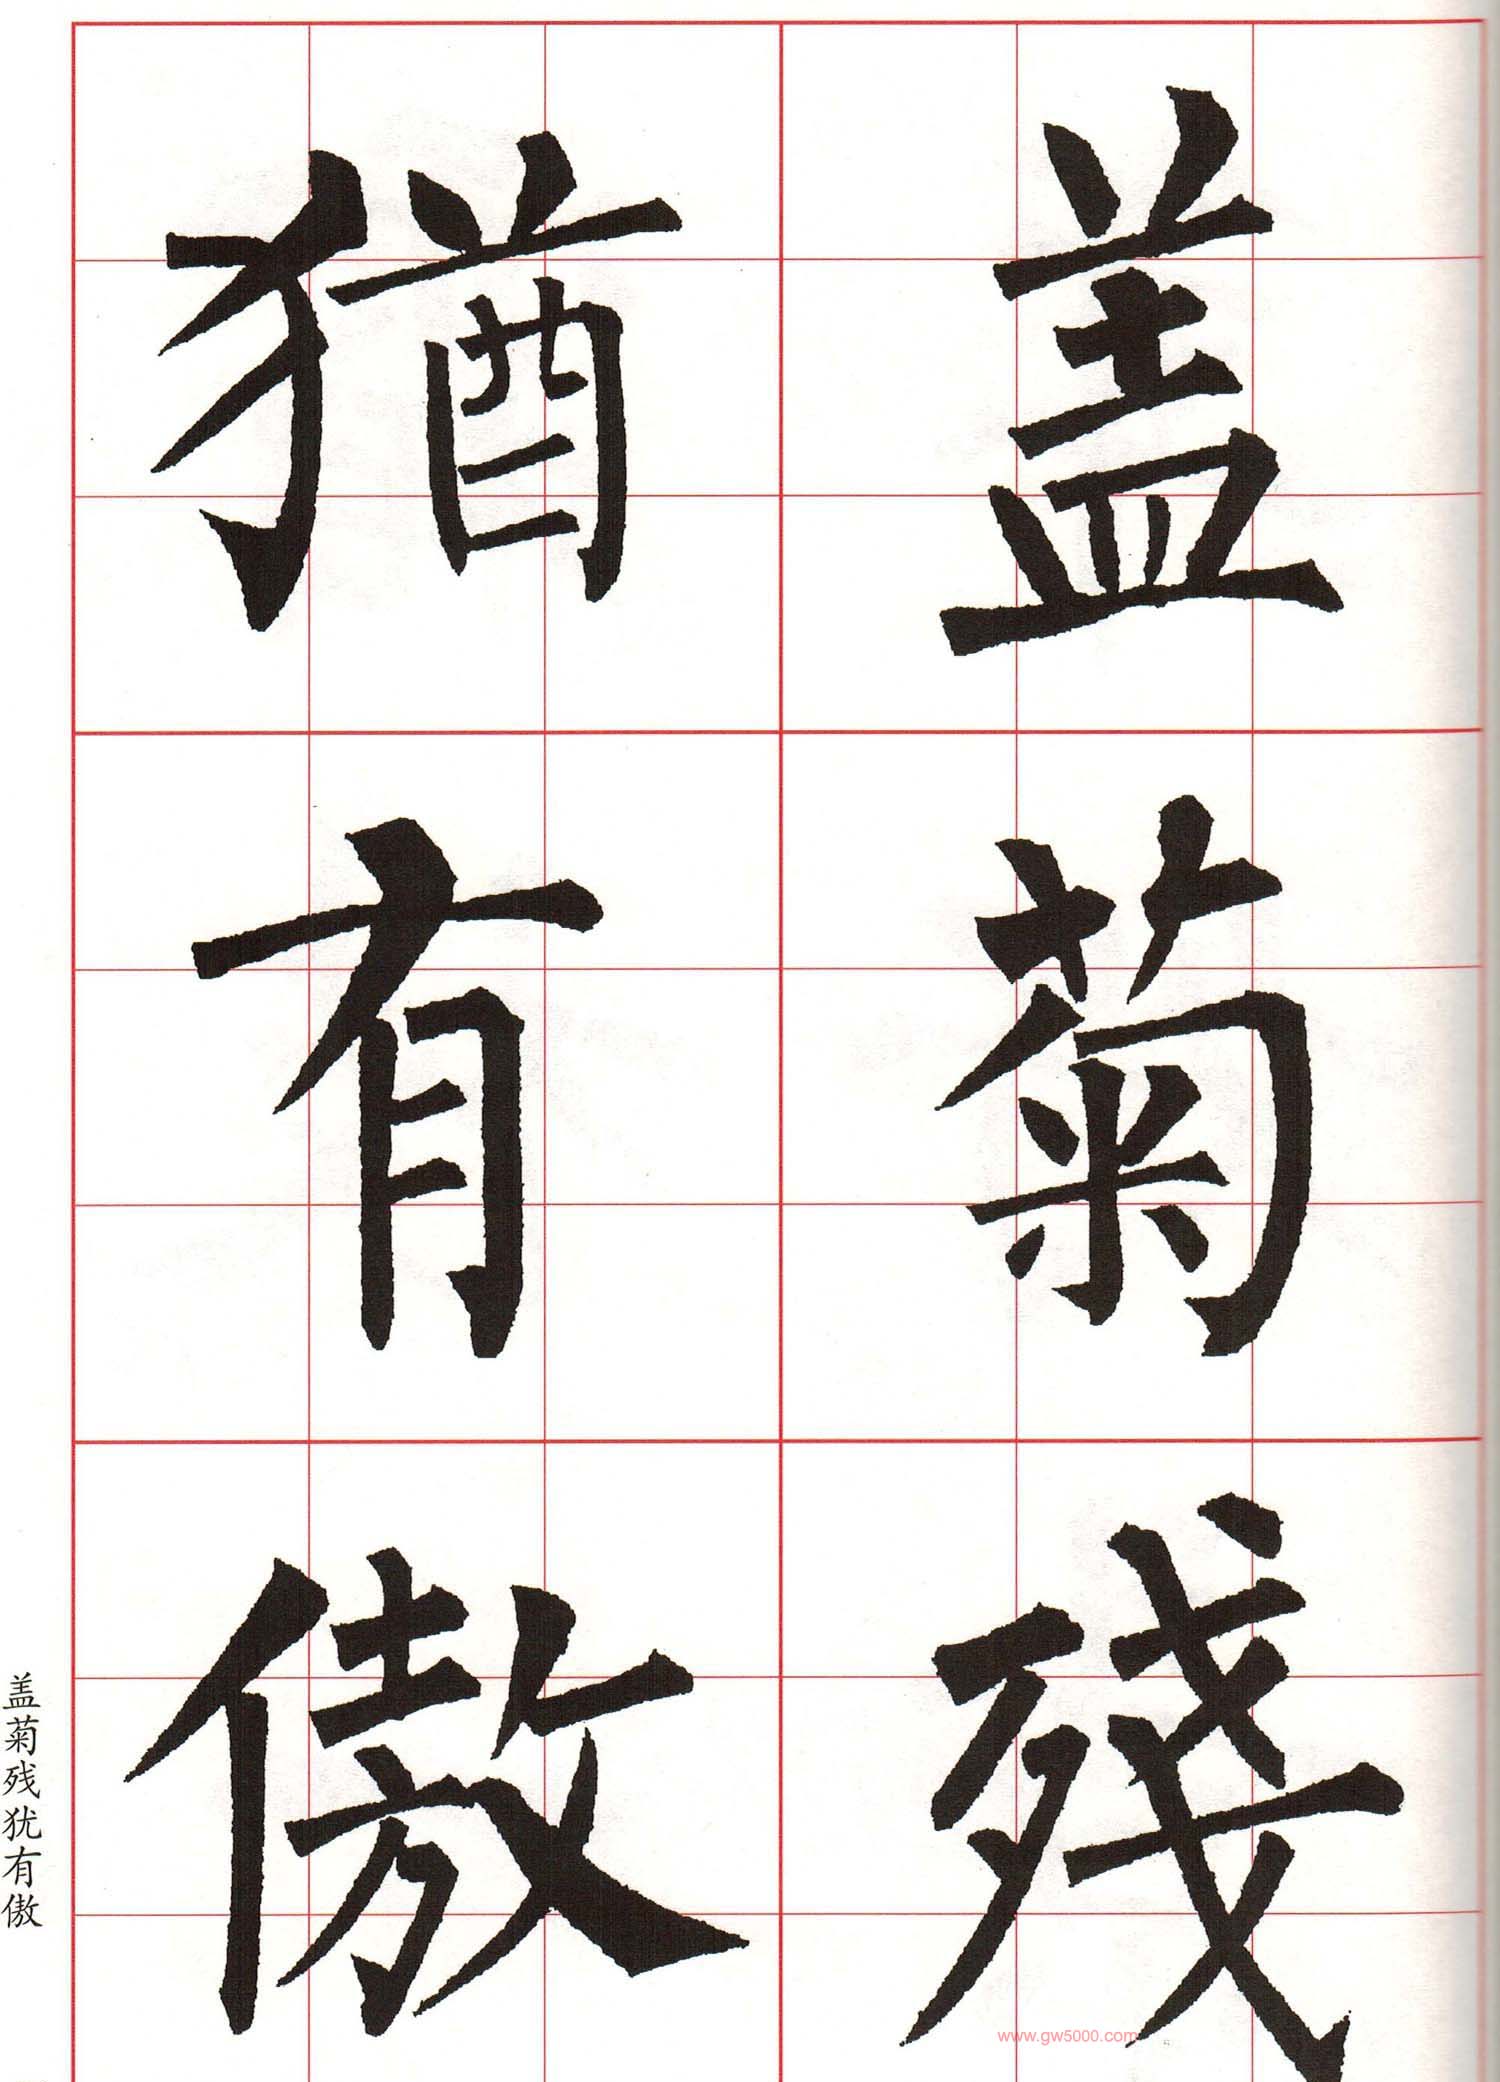 盖菊殘
猶有傲
盖菊残犹有傲
www.gw5000.com